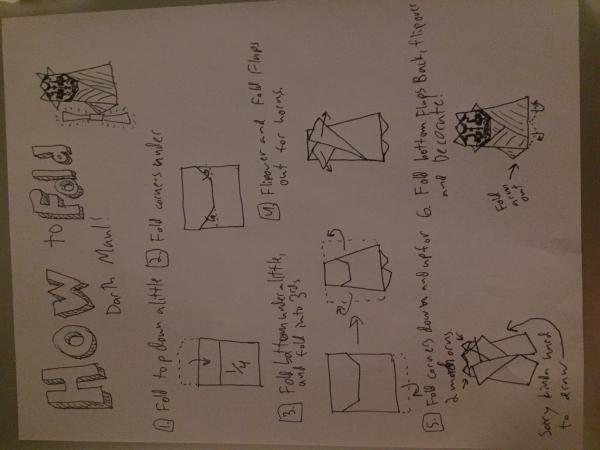 HOW to Fold
Darth Maul!
1. Fold top down a little
1/4
2. Fold corners under
3. Fold bottom under a little,
and fold into 3rds
4. Flipover and Fold Flaps
out for horns.
5. Fold corners down and up for
2 more horns.
Sorry kinda hard
to draw
6. Fold bottom flaps Back, flipover
and Decorate!
Fold
arm
out